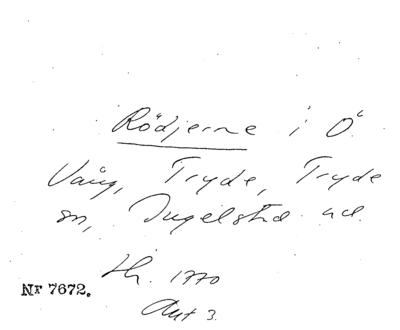 Rödjerne i Ö.
Vång, Tryde, Tryde
sn, Ingelstad hd.
Sk. 1770
Akt 3.
Nr 7672.